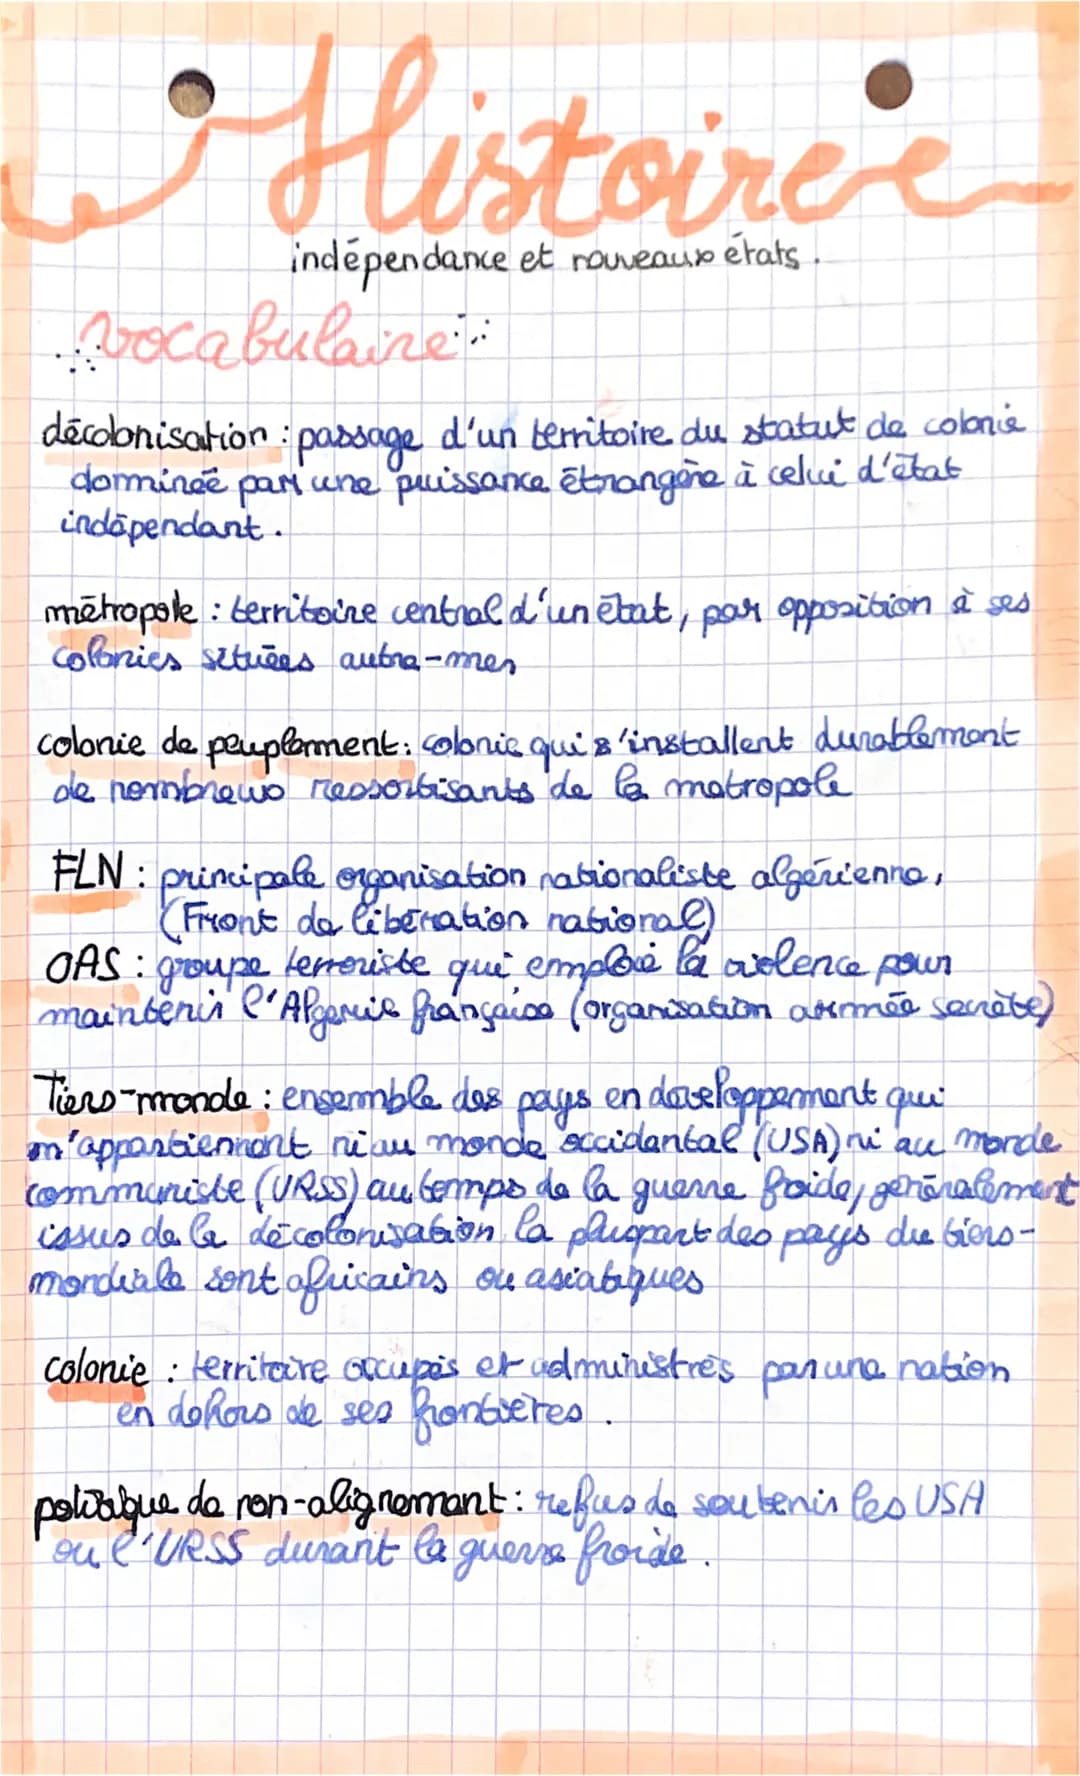 Histoire
indépendance et nouveaux états.
vocabulaire
décolonisation : passage d'un territoire du statut de colonie
dominée par une puissance étrangère à celui d'état
indépendant.
métropole : territoire central d'un état, par opposition à ses
colonies situées autra-mer
colonie de peuplement : colonie qui s'installent durablement
de nombreux ressortisants de la metropole
FLN : principale organisation nationaliste algérienne,
(Front de libération national)
OAS : groupe terroriste qui emploie la violence pour
maintenir l'Algerie française (organisation armée secrète)
Tiers-monde : ensemble des pays en developpement qui
n'appartiennent ni au monde occidental (USA) ni au monde
communiste (URSS) au temps de la guerre froide, généralement
issus de la décolonisation la plupart des pays du tiers-
mondiale sont africains ou asiatiques
colonie : territoire occupés et administrés par une nation
en dehors de ses frontières.
politique de non-alignement : refus de soutenir les USA
ou l'URSS durant la guerre froide.